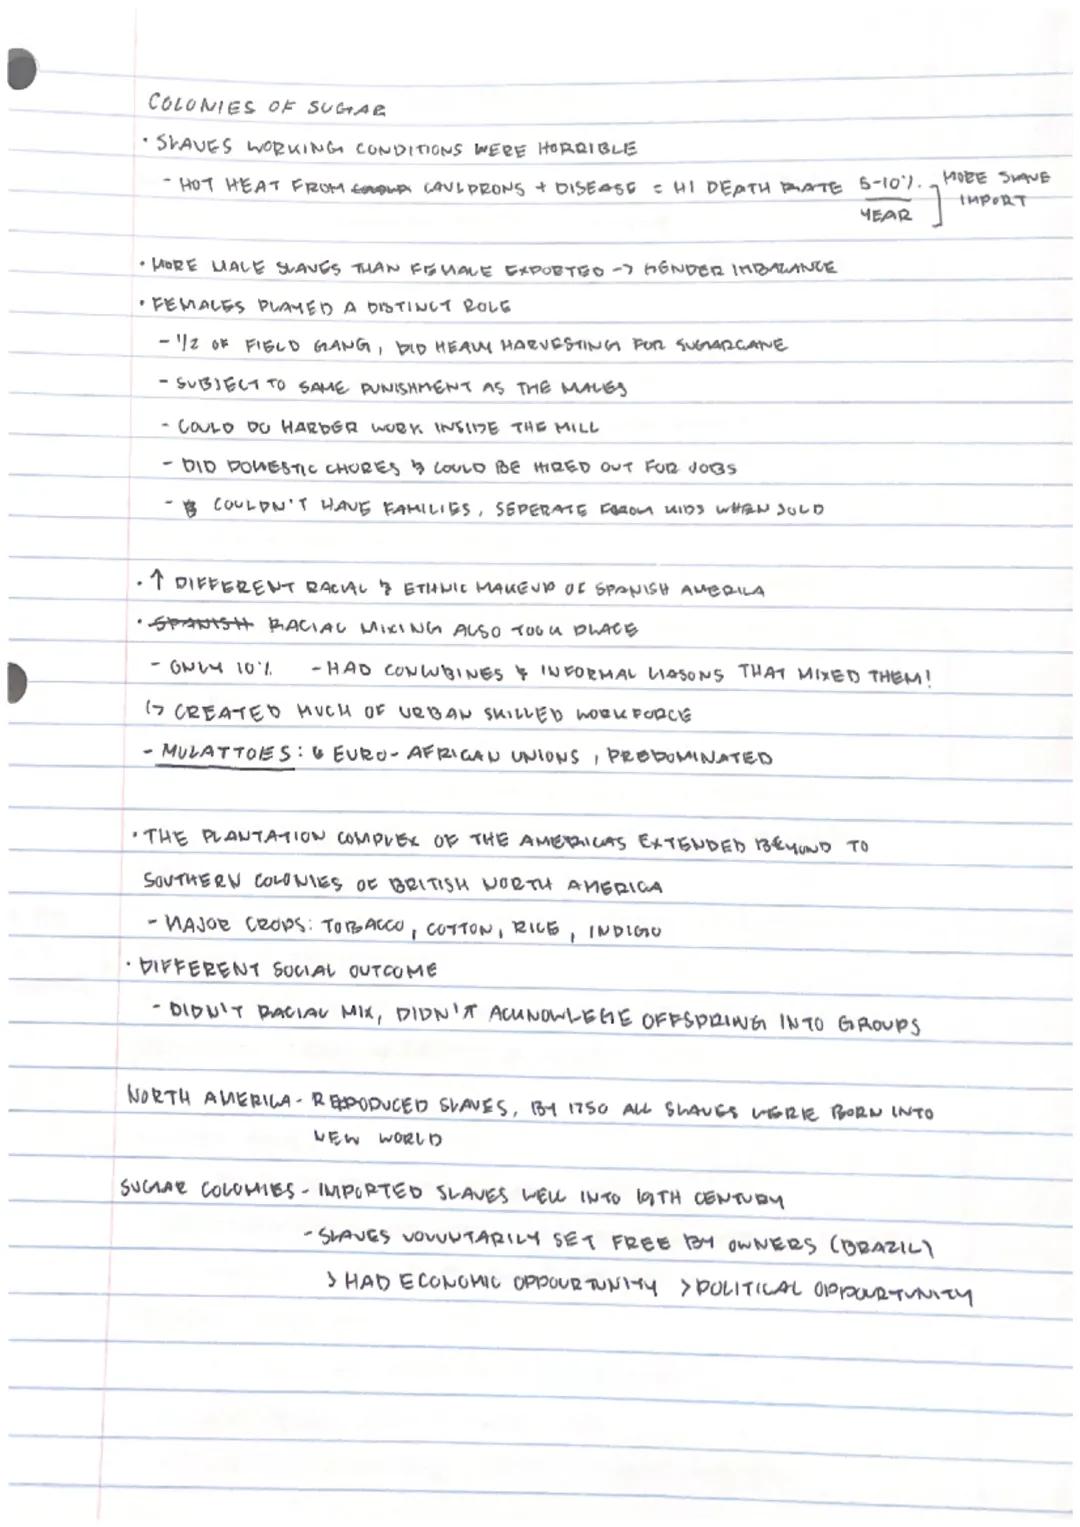 COLONIES OF SUGAR
• SLAVES WORKING CONDITIONS WERE HORRIBLE
- HOT HEAT FROM CAULDRONS + DISEASE = HI DEATH RATE 5-10% / YEAR ] MORE SLAVE IMPORT
• MORE MALE SLAVES THAN FEMALE EXPORTED -> GENDER IMBALANCE
• FEMALES PLAYED A DISTINCT ROLE
- 1/2 OF FIELD GANG, DID HEAVY HARVESTING FOR SUGARCANE
- SUBJECT TO SAME PUNISHMENT AS THE MALES
- COULD DO HARDER WORK INSIDE THE MILL
- DID DOMESTIC CHORES & COULD BE HIRED OUT FOR JOBS
- COULDN'T HAVE FAMILIES, SEPERATE FROM KIDS WHEN SOLD
• ↑ DIFFERENT RACIAL & ETHNIC MAKEUP OF SPANISH AMERICA
• SPANISH RACIAL MIXING ALSO TOOK PLACE
- ONLY 10% - HAD CONCUBINES & INFORMAL LIASONS THAT MIXED THEM!
↳ CREATED MUCH OF URBAN SKILLED WORKFORCE
- MULATTOES: EURO-AFRICAN UNIONS, PREDOMINATED
• THE PLANTATION COMPLEX OF THE AMERICAS EXTENDED BEYOND TO
SOUTHERN COLONIES OF BRITISH NORTH AMERICA
- MAJOR CROPS: TOBACCO, COTTON, RICE, INDIGO
• DIFFERENT SOCIAL OUTCOME
- DIDN'T RACIAL MIX, DIDN'T ACKNOWLEGE OFFSPRING INTO GROUPS
NORTH AMERICA - REPODUCED SLAVES, BY 1750 ALL SLAVES WERE BORN INTO
NEW WORLD
SUGAR COLONIES - IMPORTED SLAVES WELL INTO 19TH CENTURY
- SLAVES VOLUNTARILY SET FREE BY OWNERS (BRAZIL)
> HAD ECONOMIC OPPOURTUNITY > POLITICAL OPPOURTUNITY